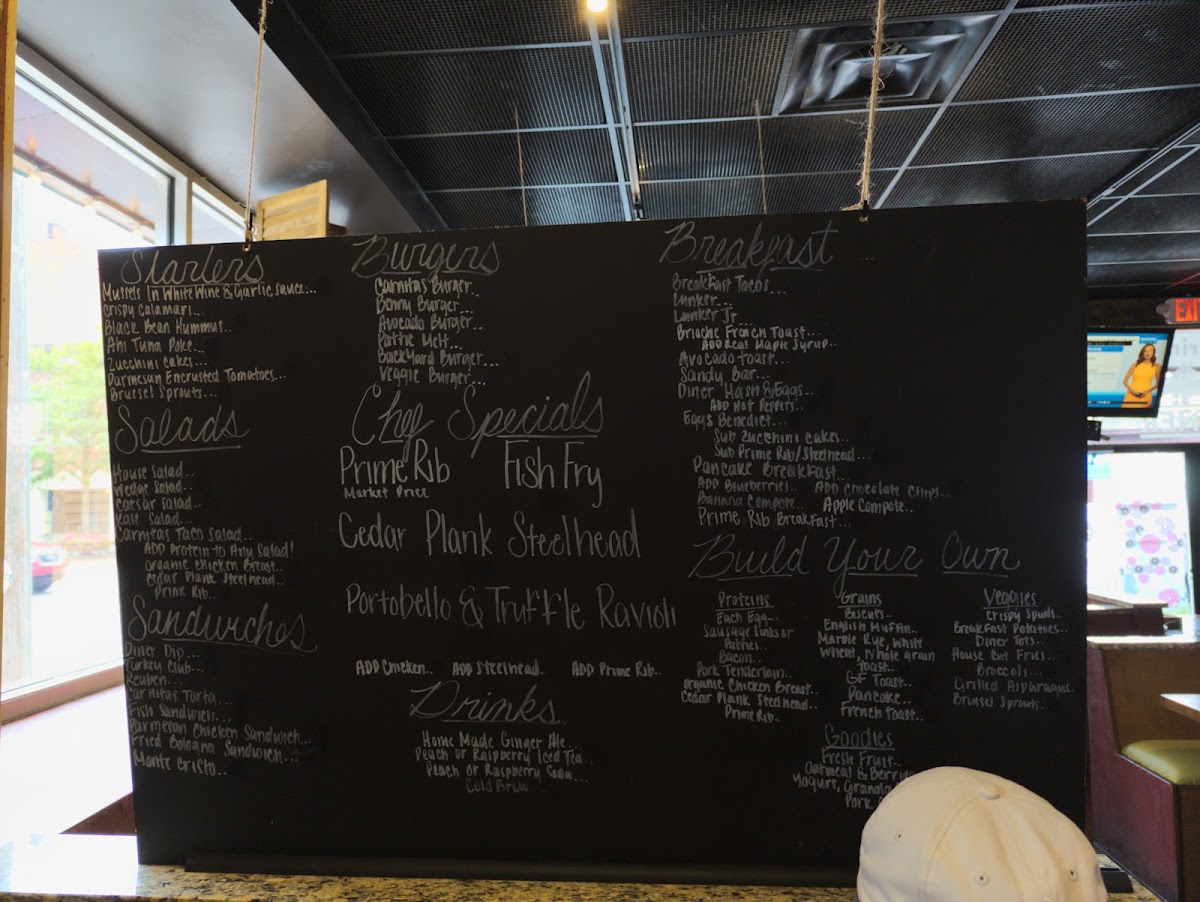 Starters
Mussels In White Wine & Garlic Sauce...
Crispy Calamari...
Black Bean Hummus..
Ahi Tuna Poke...
Zucchini Cakes...
Parmesan Encrusted Tomatoes...
Brussel Sprouts...
Salads
House Salad...
Wedge Salad...
Caesar Salad...
Kale Salad...
Carnitas Taco Salad..
ADD Protein to Any Salad!
Organic Chicken Breast...
Cedar Plank Steelhead..
Prime Rib..
Sandwiches
Diner Dip...
Turkey Club...
Reuben...
Carnitas Torta...
Fish Sandwich...
Parmesan Chicken Sandwich...
Fried Bologna Sandwich...
Monte Cristo..
Burgers
Carnitas Burger..
Benny Burger...
Avocado Burger..
Pattie Melt...
Backyard Burger...
Veggie Burger...
Chef Specials
Prime Rib
Market Price
Fish Fry
Cedar Plank Steelhead
Portobello & Truffle Ravioli
ADD Chicken.. ADD Steelhead.. ADD Prime Rib..
Drinks
Home Made Ginger Ale...
Peach or Raspberry Iced Tea..
Peach or Raspberry Soda...
Cold Brew
Breakfast
Breakfast Tacos...
Lunker...
Lunker Jr...
Brioche French Toast...
ADD Real Maple Syrup..
Avocado Toast...
Sandy Bar...
Diner Hash & Eggs..
ADD Hot Peppers..
Eggs Benedict...
Sub Zucchini Cakes..
Sub Prime Rib/Steelhead...
Pancake Breakfast...
ADD Blueberries.. ADD Chocolate Chips...
Banana Compote.. Apple Compote..
Prime Rib Breakfast...
Build Your Own
Proteins
Each Egg...
Sausage Links or
Patties..
Bacon..
Pork Tenderloin..
Organic Chicken Breast..
Cedar Plank Steelhead..
Prime Rib..
Grains
Biscuts..
English Muffin..
Marble Rye, White
Wheat, Whole Grain
Toast..
GF Toast..
Pancake..
French Toast..
Veggies
Crispy Spuds..
Breakfast Potatoes..
Diner Tots..
House Cut Fries..
Broccoli..
Grilled Asparagus
Brussel Sprouts..
Goodies
Fresh Fruit..
Oatmeal & Berries
Yogurt, Granola
Pork
EXI